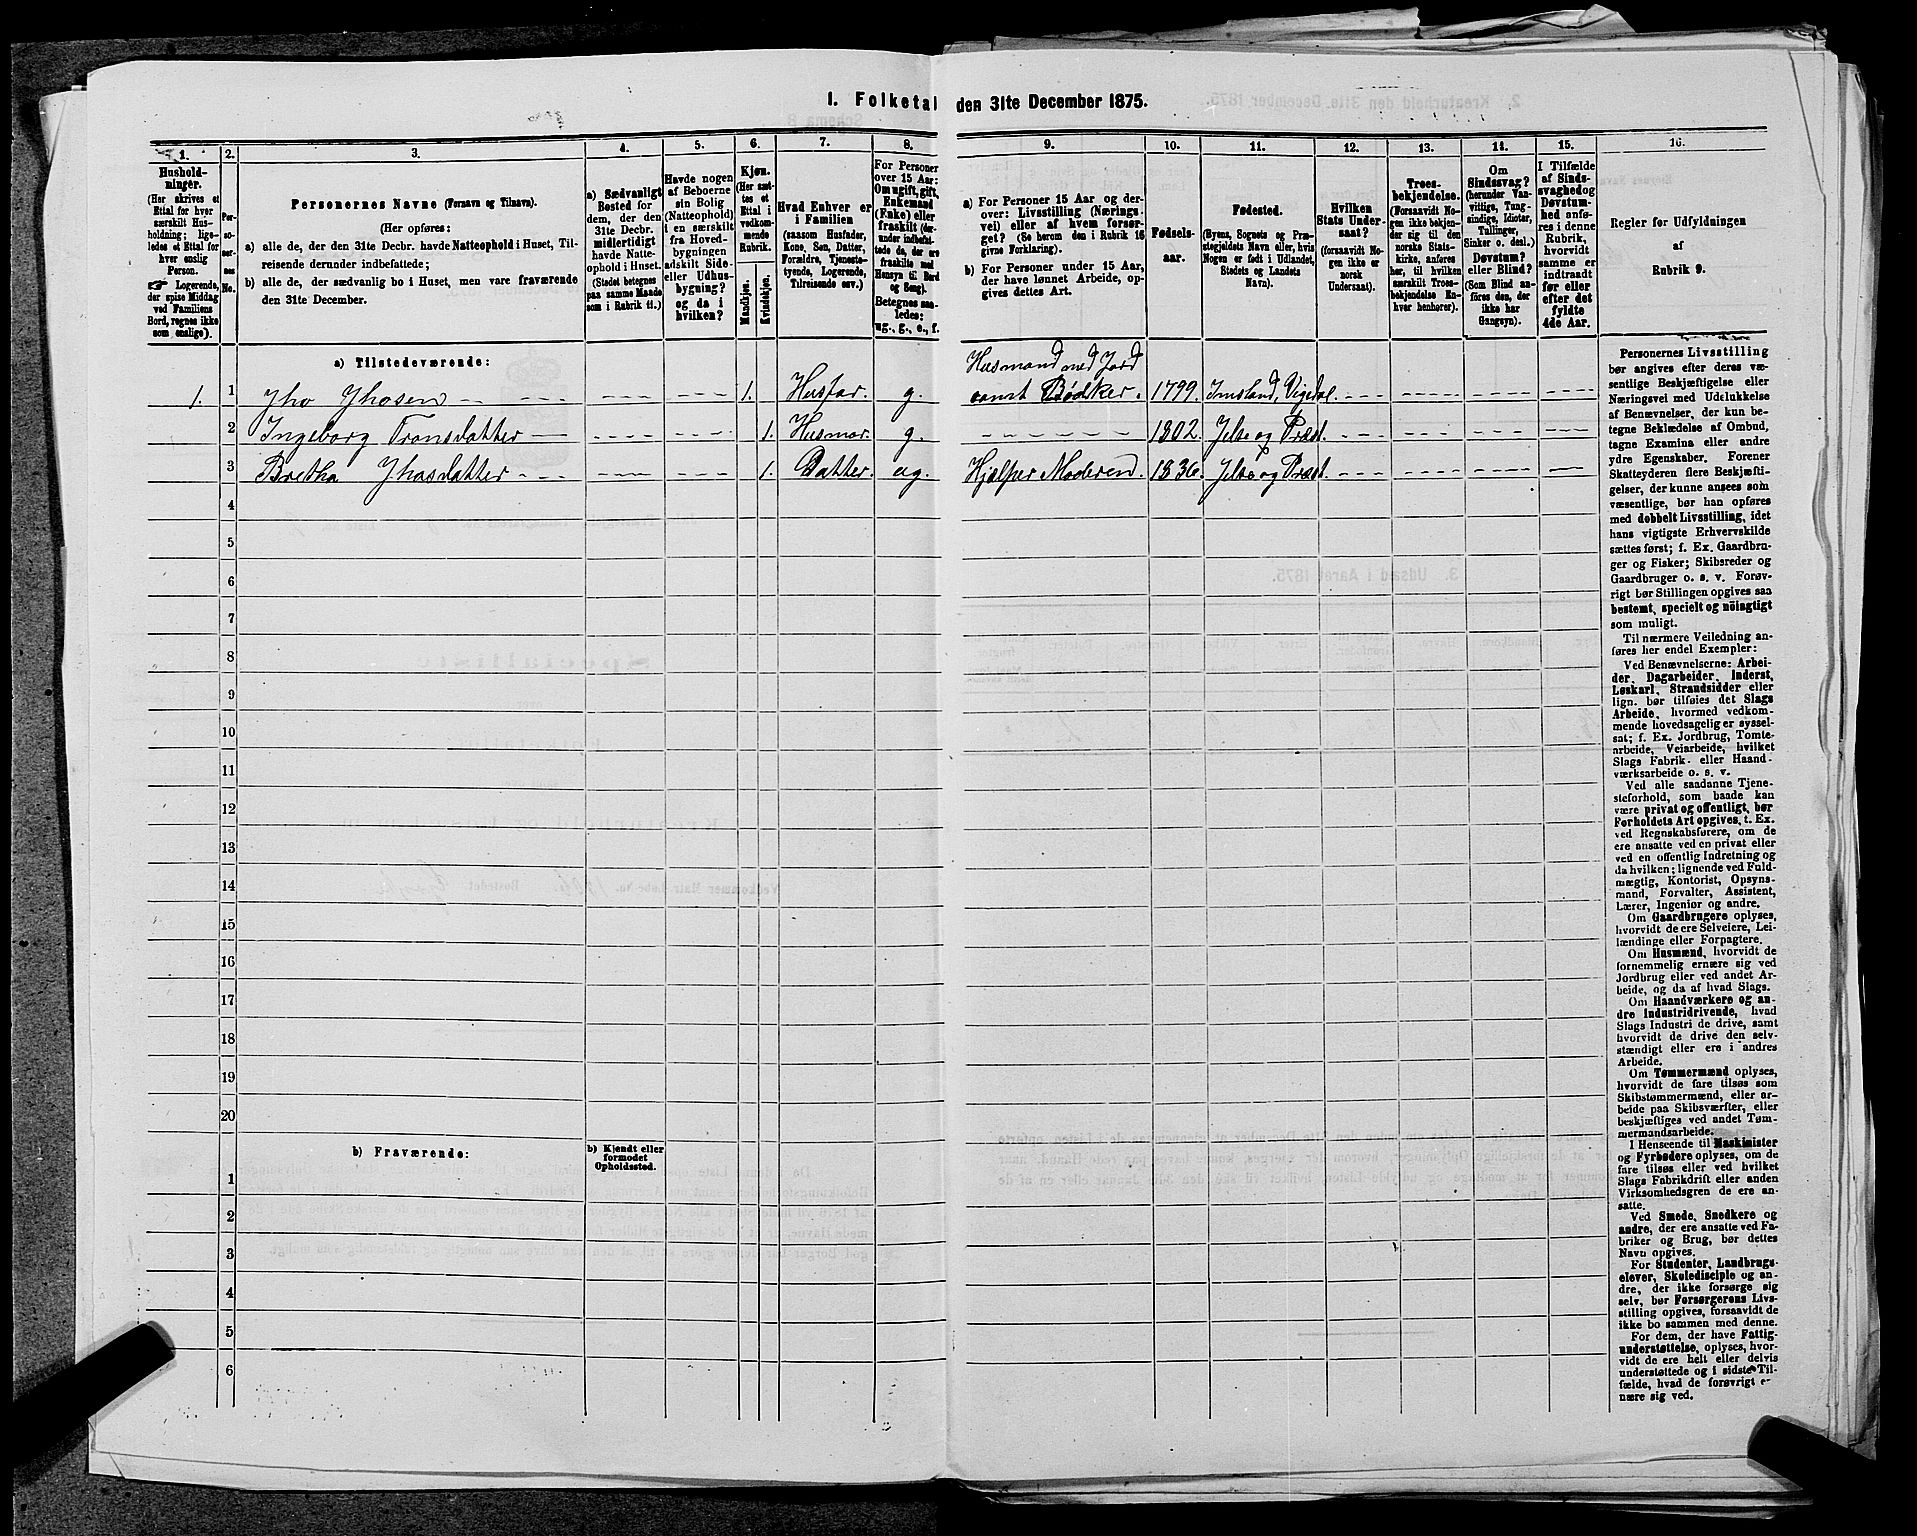 1. Folketal den 31te December 1875.
1. 2. 3. 4. 5. 6. 7. 8. 9. 10. 11. 12. 13. 14. 15. 16.
Hushold-
ninger.
(Her skrives et
Ettal for hver
særskilt Hus-
holdning; lige-
ledes et Ettal for
hver enslig
Person.
☞ Logerende,
der spise Middag
ved Familiens
Bord, regnes ikke
som enslige).
Per-
so-
ner-
nes
No.
Personernes Navne (Fornavn og Tilnavn).
(Her opføres:
a) alle de, der den 31te Decbr. havde Natteophold i Huset, Til-
reisende derunder indbefattede;
b) alle de, der sædvanlig bo i Huset, men vare fraværende
den 31te December.
a) Sædvanligt
Bosted for
dem, der den
31te Decbr.
midlertidigt
havde Natte-
ophold i Huset.
(Stedet betegnes
paa samme Maade
som i Rubrik 11.)
Havde nogen
af Beboerne
sin Bolig
(Natteophold)
i en særskilt
fra Hoved-
bygningen
adskilt Side-
eller Udhus-
bygning?
og da i
hvilken?
Kjøn.
(Her sæt-
tes et
Ettal i
vedkom-
mende
Rubrik.
Mandkjøn.
Kvindekjøn.
Hvad Enhver er
i Familien
(saasom Husfader,
Kone, Søn, Datter,
Forældre, Tjeneste-
tyende, Logerende,
Tilreisende osv.)
For Personer
over 15 Aar:
Om ugift, gift,
Enkemand
(Enke) eller
fraskilt (der-
under indbefat-
tede de, der ere
fraskilte med
Hensyn til Bord
og Seng).
Betegnes saa-
ledes:
ug., g., e., f.
a) For Personer 15 Aar og der-
over: Livsstilling (Nærings-
vei) eller af hvem forsør-
get? (Se herom den i Rubrik 16
givne Forklaring).
b) For Personer under 15 Aar,
der have lønnet Arbeide, op-
gives dettes Art.
Fødsels-
aar.
Fødested.
(Byens, Sognets og Præ-
stegjeldets Navn eller, hvis
Nogen er født i Udlandet,
Stedets og Landets
Navn).
Hvilken
Stats Under-
saat?
(forsaavidt No-
gen ikke er
norsk
Undersaat).
Troes-
bekjendelse.
(Forsaavidt No-
gen ikke bekjen-
der sig til den
norske Stats-
kirke, anføres
her, til hvilken
særskilt Troes-
bekjendelse En-
hver henhører).
Om
Sindssvag?
(herunder Van-
vittige, Tung-
sindige, Idioter,
Tullinger,
Sinker o. desl.)
Døvstum?
eller Blind?
(Som Blind an-
føres den, der
ikke har
Gangsyn).
I Tilfælde
af Sinds-
svaghed og
Døvstum-
hed anfø-
res i denne
Rubrik,
hvorvidt
samme er
indtraadt
før eller
efter det
fyldte
4de Aar.
Regler for Udfyldningen
af
Rubrik 9.
a) Tilstedeværende:
1. 1 Jho Jhosen 1. Husfar. g. Husmand med Jord samt Bødker. 1799. Imsland, Vigedal.
2 Ingeborg Tronsdatter 1. Husmor. g. 1802. Jelse og Præst.
3 Bretha Jhosdatter 1. Datter. ug. Hjælper Moderen. 1836. Jelse og Præst.
4
5
6
7
8
9
10
11
12
13
14
15
16
17
18
19
20
b) Fraværende:
b) Kjendt eller
formodet
Opholdssted.
1
2
3
4
5
6
Personernes Livsstilling
bør angives efter deres væ-
sentlige Beskjæftigelse eller
Næringsvei med Udelukkelse
af Benævnelser, der kun be-
tegne Beklædelse af Ombud,
tagne Examina eller andre
ydre Egenskaber. Forener
Skatteyderen flere Beskjæfti-
gelser, der kunne ansees som
væsentlige, bør han opføres
med dobbelt Livsstilling, idet
hans vigtigste Erhvervskilde
sættes først; f. Ex. Gaardbru-
ger og Fisker; Skibsreder og
Gaardbruger o. s. v. Forøv-
rigt bør Stillingen opgives saa
bestemt, specielt og nöiagtigt
som muligt.
Til nærmere Veiledning an-
føres her endel Exempler:
Ved Benævnelserne: Arbei-
der, Dagarbeider, Inderst,
Løskarl, Strandsidder eller
lign. bør tilføies det Slags
Arbeide, hvormed vedkom-
mende hovedsagelig er syssel-
sat; f. Ex. Jordbrug, Tomte-
arbeide, Veiarbeide, hvilket
Slags Fabrik- eller Haand-
værksarbeide o. s. v.
Ved alle saadanne Tjene-
steforhold, som baade kan
være privat og offentligt, bør
Forholdets Art opgives, t. Ex.
ved Regnskabsførere, om de
ere ansatte ved en privat eller
ved en offentlig Indretning og
da hvilken; lignende ved Fuld-
mægtig, Kontorist, Opsyns-
mand, Forvalter, Assistent,
Lærer, Ingeniør og andre.
Om Gaardbrugere oplyses,
hvorvidt de ere Selveiere, Lei-
lændinge eller Forpagtere.
Om Husmænd, hvorvidt de
fornemmelig ernære sig ved
Jordbrug eller ved andet Ar-
beide, og da af hvad Slags.
Om Haandværkere og an-
dre Industridrivende, hvad
Slags Industri de drive, samt
hvorvidt de drive den selv-
stændigt eller ere i andres
Arbeide.
Om Tømmermænd oplyses,
hvorvidt de fare tilsøs som
Skibstømmermænd, eller ar-
beide paa Skibsværfter, eller
beskjæftiges ved andet Tøm-
mermandsarbeide.
I Henseende til Maskinister
og Fyrbødere oplyses, om de
fare tilsøs eller ved hvilket
Slags Fabrikdrift eller anden
Virksomhedsgren de ere an-
satte.
Ved Smede, Snedkere og
andre, der ere ansatte ved Fa-
briker og Brug, bør dettes
Navn opgives.
For Studenter, Landbrugs-
elever, Skoledisciple og an-
dre, der ikke forsørge sig
selv, bør Forsørgerens Livs-
stilling opgives, forsaavidt de
ikke bo sammen med denne.
For dem, der have Fattig-
understøttelse, oplyses, hvor-
vidt de ere helt eller delvis
understøttede og i sidste Til-
fælde, hvad de forøvrigt er-
nære sig ved.